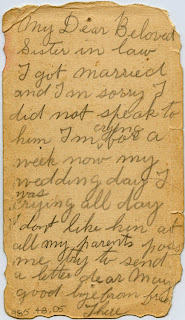 My Dear Beloved
Sister in law
I got married
and I'm sorry I
did not speak to
crying
him I'm for a
week now my
wedding day I
was
crying all day
I dont like him at
all my parents
me to send
a letter dear May
good bye from
385.48.05